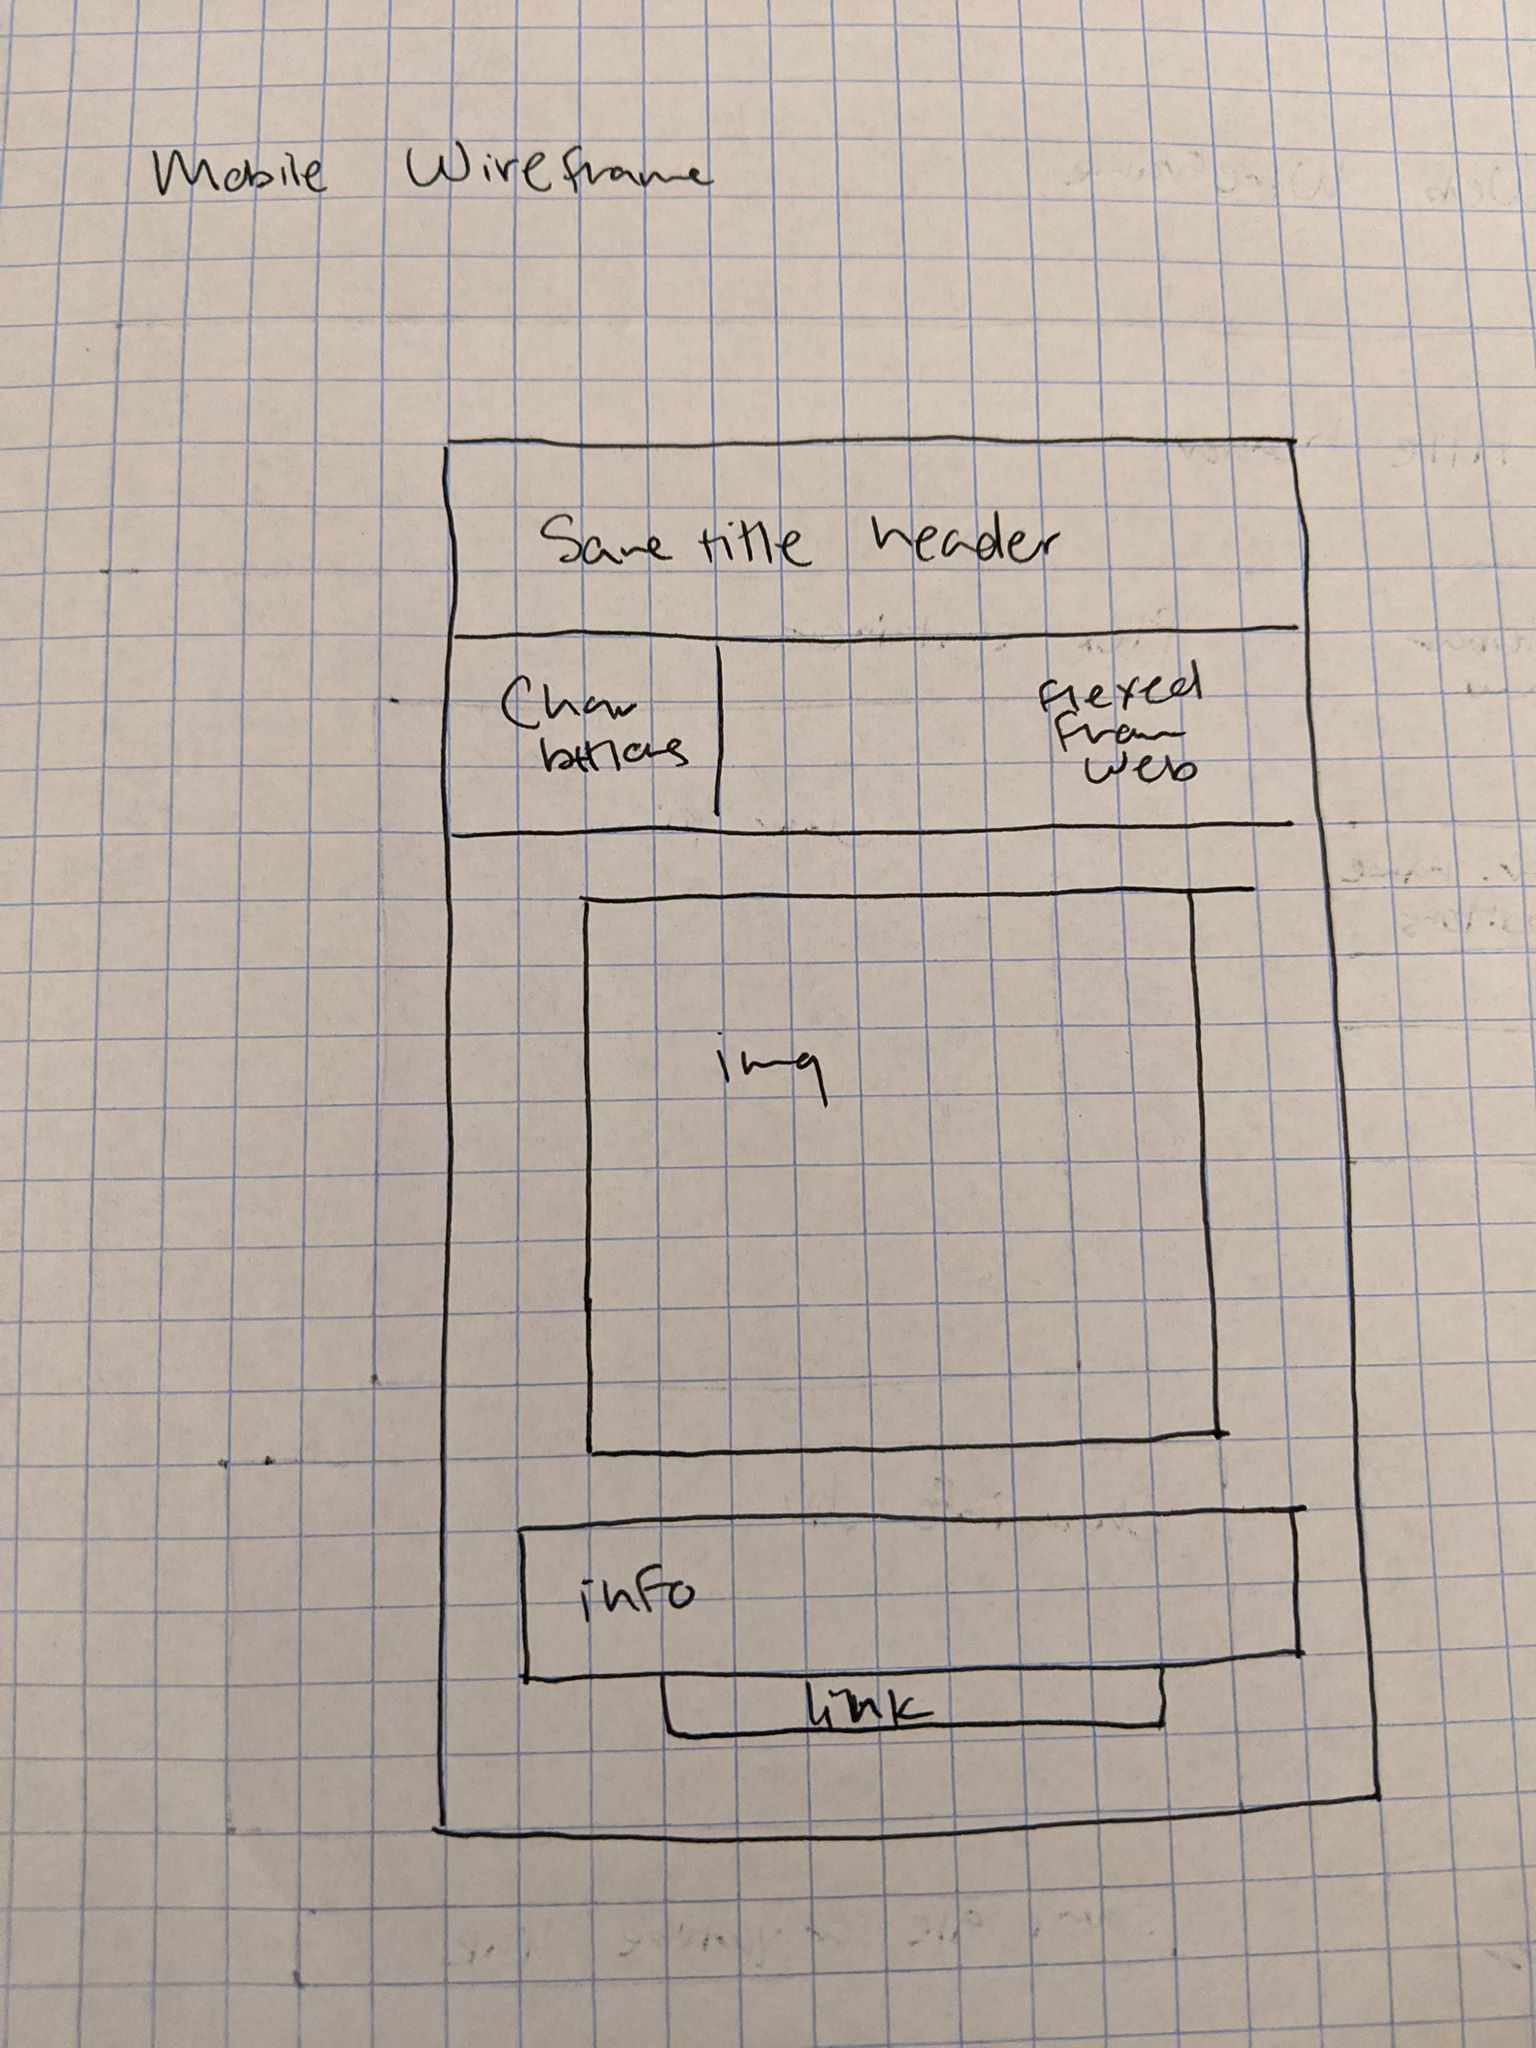 Mobile Wireframe
Same title header
Char
buttons
flexed
from
web
img
info
link